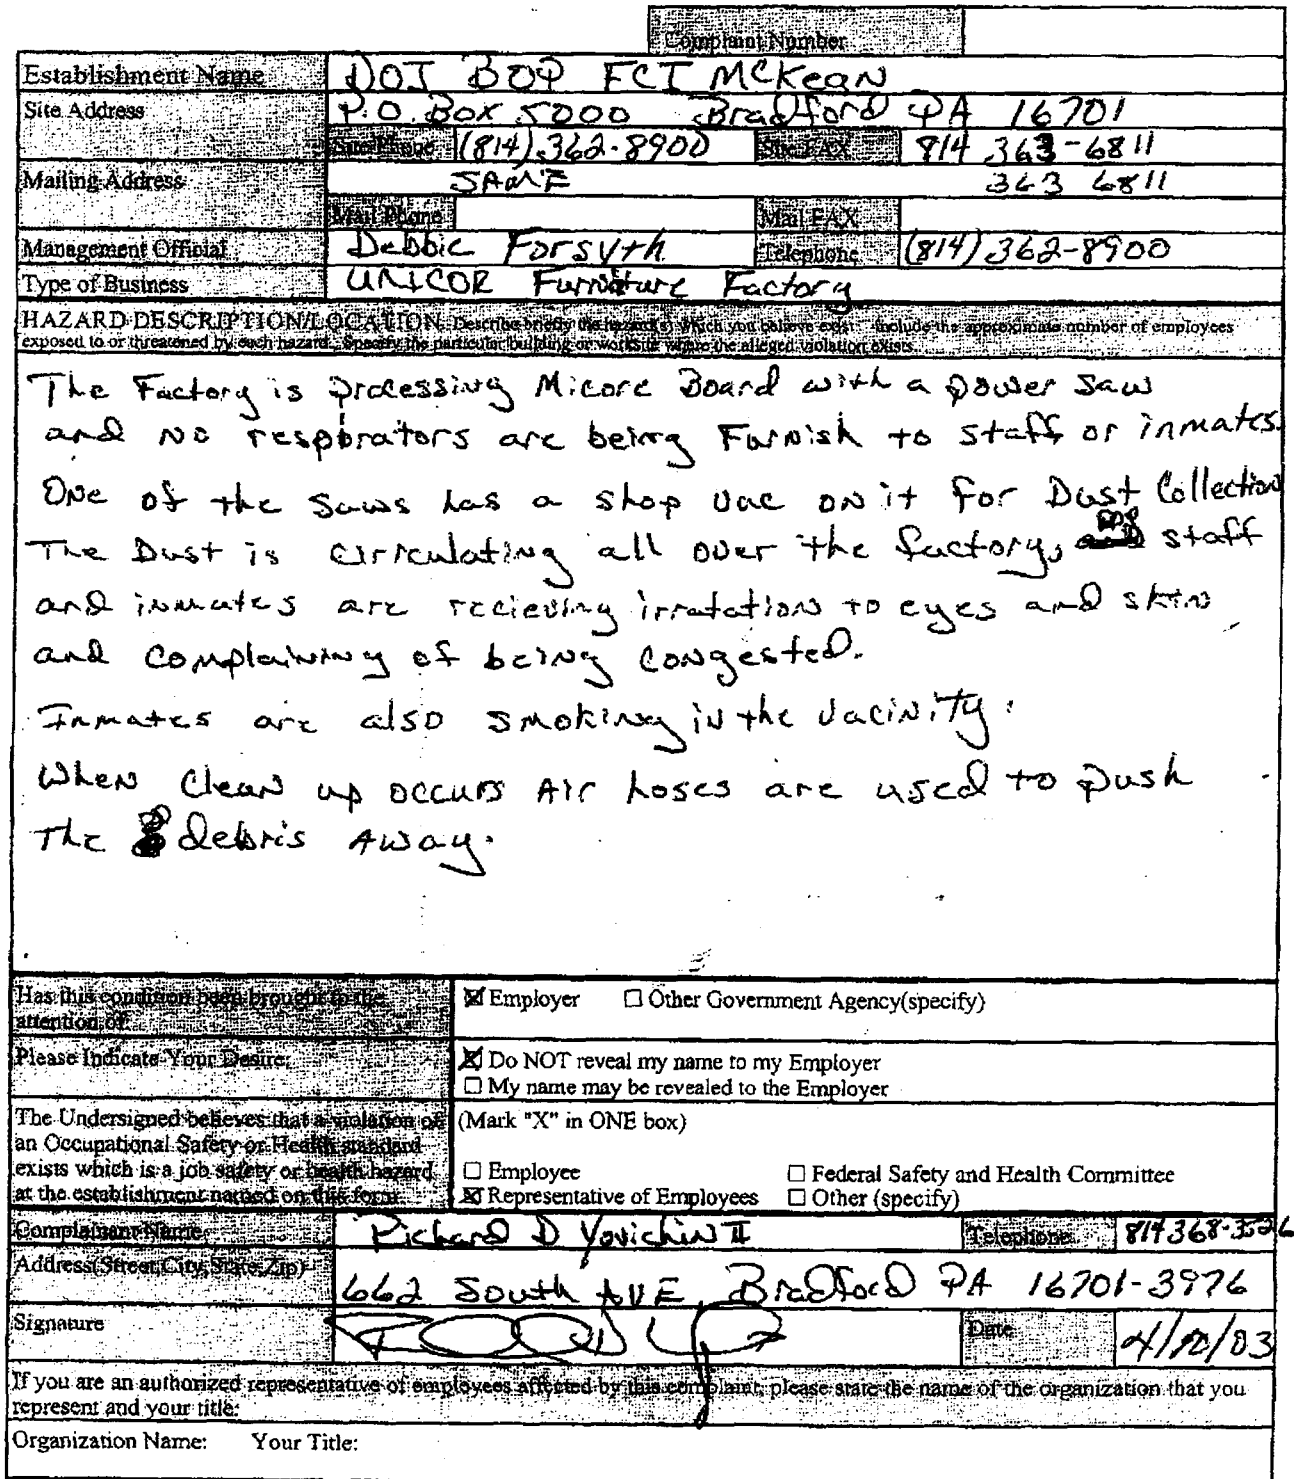 Complaint Number
Establishment Name DOJ BOP FCI McKean
Site Address P.O. Box 5000 Bradford PA 16701
Site Phone (814) 362-8900 Site FAX 814 363-6811
Mailing Address SAME 363 6811
Mail Phone Mail FAX
Management Official Debbie Forsyth Telephone (814) 362-8900
Type of Business UNICOR Furniture Factory
HAZARD DESCRIPTION/LOCATION. Describe briefly the hazard(s) which you believe exist. Include the approximate number of employees
exposed to or threatened by each hazard. Specify the particular building or worksite where the alleged violation exists.
The Factory is processing Micore Board with a power saw
and No respirators are being Furnish to staff or inmates.
One of the saws has a shop vac on it for Dust Collection
The Dust is cirrculating all over the factory, staff
and inmates are recieving irratation to eyes and skin
and complaining of being congested.
Inmates are also smoking in the vacinity.
When Clean up occurs Air hoses are used to push
The debris Away.
Has this condition been brought to the
attention of:
☒ Employer ☐ Other Government Agency(specify)
Please Indicate Your Desire:
☒ Do NOT reveal my name to my Employer
☐ My name may be revealed to the Employer
The Undersigned believes that a violation of
an Occupational Safety or Health standard
exists which is a job safety or health hazard
at the establishment named on this form.
(Mark "X" in ONE box)
☐ Employee ☐ Federal Safety and Health Committee
☒ Representative of Employees ☐ Other (specify)
Complainant Name Richard D Yovichin II Telephone 814 368-3526
Address(Street,City,State,Zip) 662 South AVE Bradford PA 16701-3976
Signature Date 4/10/03
If you are an authorized representative of employees affected by this complaint, please state the name of the organization that you
represent and your title:
Organization Name: Your Title: